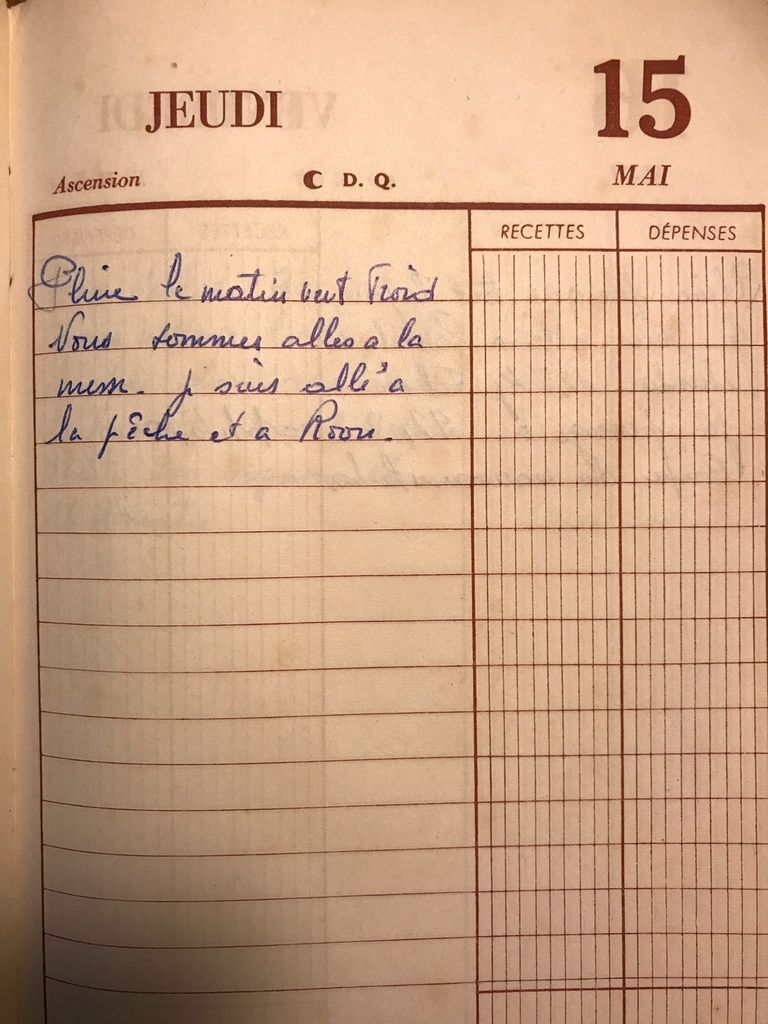 JEUDI 15
Ascension D. Q. MAI
RECETTES DÉPENSES
Pluie le matin vent Froid
Nous sommes alles a la
messe. j suis allé a
la pêche et a